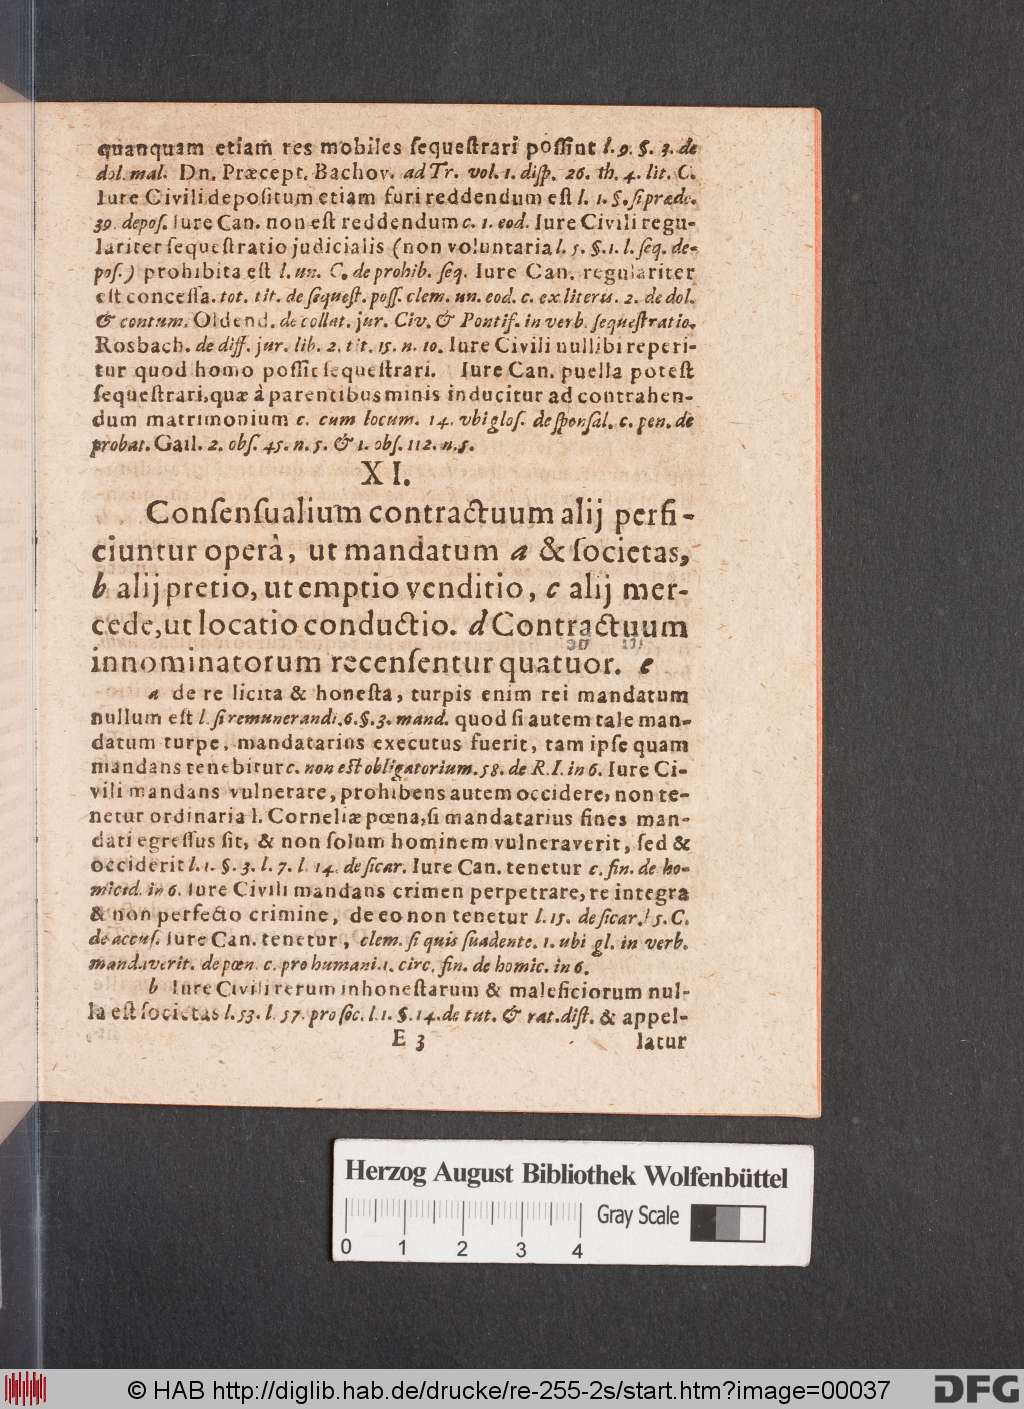 quanquam etiam res mobiles ſequeſtrari poſſint l. 9. §. 3. de
dol. mal. Dn. Præcept. Bachov. ad Tr. vol. 1. diſp. 26. th. 4. lit. C.
Iure Civili depoſitum etiam furi reddendum eſt l. 1. §. ſi præde.
39. depoſ. Iure Can. non eſt reddendum c. 1. eod. Iure Civili regu-
lariter ſequeſtratio judicialis (non voluntaria l. 5. §. 1. l. ſeq. de-
poſ.) prohibita eſt l. un. C. de prohib. ſeq. Iure Can. regulariter
eſt conceſſa. tot. tit. de ſequeſt. poſſ. clem. un. eod. c. ex literis. 2. de dol.
& contum. Oldend. de collat. jur. Civ. & Pontif. in verb. ſequeſtratio.
Rosbach. de diff. jur. lib. 2. tit. 15. n. 10. Iure Civili nullibi reperi-
tur quod homo poſſit ſequeſtrari. Iure Can. puella poteſt
ſequeſtrari, quæ à parentibus minis inducitur ad contrahen-
dum matrimonium c. cum locum. 14. vbi gloſ. de ſponſal. c. pen. de
probat. Gail. 2. obſ. 45. n. 5. & 1. obſ. 112. n. 5.
XI.
Conſenſualium contractuum alij perfi-
ciuntur operà, ut mandatum a & ſocietas,
b alij pretio, ut emptio venditio, c alij mer-
cede, ut locatio conductio. d Contractuum
innominatorum recenſentur quatuor. e
a de re licita & honeſta, turpis enim rei mandatum
nullum eſt l. ſi remunerandi. 6. §. 3. mand. quod ſi autem tale man-
datum turpe, mandatarius executus fuerit, tam ipſe quam
mandans tenebitur c. non eſt obligatorium. 58. de R. I. in 6. Iure Ci-
vili mandans vulnerare, prohibens autem occidere, non te-
netur ordinaria l. Corneliæ pœna, ſi mandatarius fines man-
dati egreſſus ſit, & non ſolum hominem vulneraverit, ſed &
occiderit l. 1. §. 3. l. 7. l. 14. de ſicar. Iure Can. tenetur c. fin. de ho-
micid. in 6. Iure Civili mandans crimen perpetrare, re integra
& non perfecto crimine, de eo non tenetur l. 15. de ſicar. l 5. C.
de accuſ. Iure Can. tenetur, clem. ſi quis ſuadente. 1. ubi gl. in verb.
mandaverit. de pœn. c. pro humani. 1. circ. fin. de homic. in 6.
b Iure Civili rerum inhoneſtarum & maleficiorum nul-
la eſt ſocietas l. 53. l. 57. pro ſoc. l. 1. §. 14. de tut. & rat. diſt. & appel-
E 3 latur
Herzog August Bibliothek Wolfenbüttel
Gray Scale
0 1 2 3 4
© HAB http://diglib.hab.de/drucke/re-255-2s/start.htm?image=00037
DFG